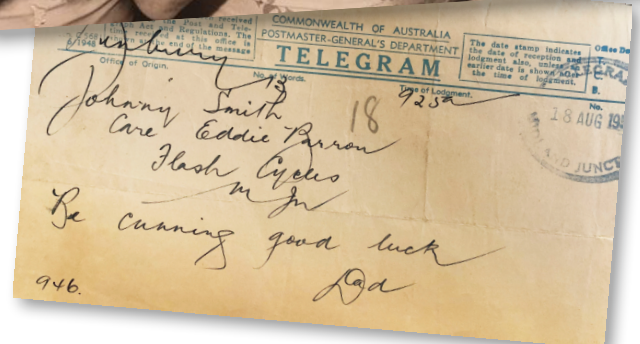 COMMONWEALTH OF AUSTRALIA
POSTMASTER-GENERAL'S DEPARTMENT
TELEGRAM
received
Post and Tele-
Act and Regulations. The
time received at this office is
shown at the end of the message
6/1946
The date stamp indicates
the date of reception and
lodgment also, unless
earlier date is shown after
the time of lodgment.
Office of Origin.
No. of Words.
Time of Lodgment.
No.
Bunbury 13 925a
18
18 AUG 195
JUNC
Johnny Smith
Care Eddie Barron
Flash Cycles
M Jn
Be cunning good luck
Dad
946.